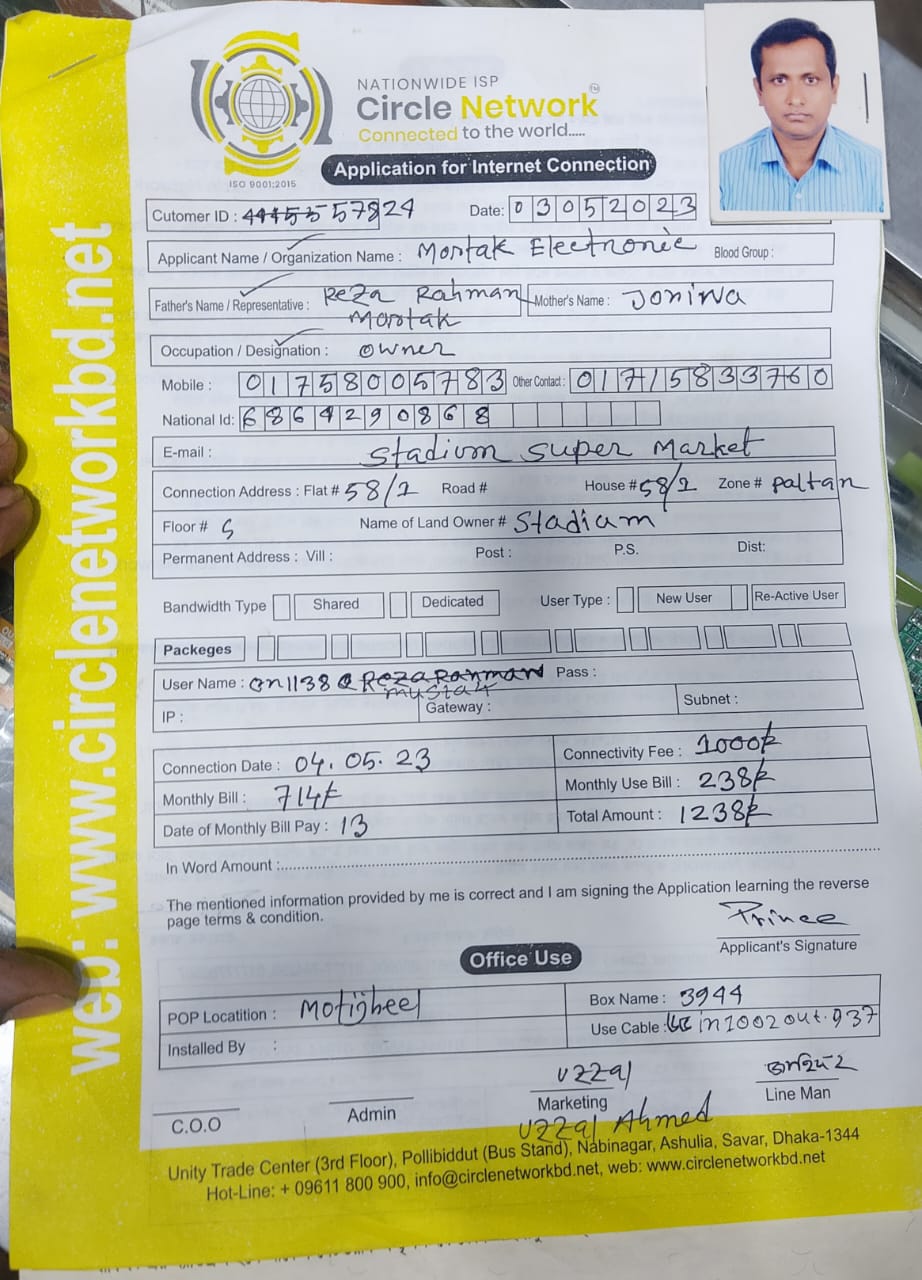 NATIONWIDE ISP
Circle Network
TM
Connected to the world.....
ISO 9001:2015
Application for Internet Connection
Cutomer ID : 57824
Date: 03052023
Applicant Name / Organization Name : Mostak Electronic Blood Group :
Father's Name / Representative : Reza Rahman Mostak
Mother's Name :
Occupation / Designation : owner
Mobile : 01758005783 Other Contact : 01715833760
National Id: 6864290868
E-mail : Stadium super Market
Connection Address : Flat # 58/2 Road # House # 58/2 Zone # Paltan
Floor # Name of Land Owner # Stadium
Permanent Address : Vill : Post : P.S. Dist:
Bandwidth Type Shared Dedicated User Type : New User Re-Active User
Packeges
User Name : Pass :
IP : Gateway : Subnet :
Connection Date : 04.05.23 Connectivity Fee : 1000/-
Monthly Bill : 714/- Monthly Use Bill : 238/-
Date of Monthly Bill Pay : 13 Total Amount : 1238/-
In Word Amount :
The mentioned information provided by me is correct and I am signing the Application learning the reverse
page terms & condition.
Prince
Applicant's Signature
Office Use
POP Locatition : Motijheel Box Name : 3944
Installed By : Use Cable : in 1002 out. 937
Uzzal
C.O.O Admin Marketing Line Man
Uzzal Ahmed
Unity Trade Center (3rd Floor), Pollibiddut (Bus Stand), Nabinagar, Ashulia, Savar, Dhaka-1344
Hot-Line: + 09611 800 900, info@circlenetworkbd.net, web: www.circlenetworkbd.net
web: www.circlenetworkbd.net